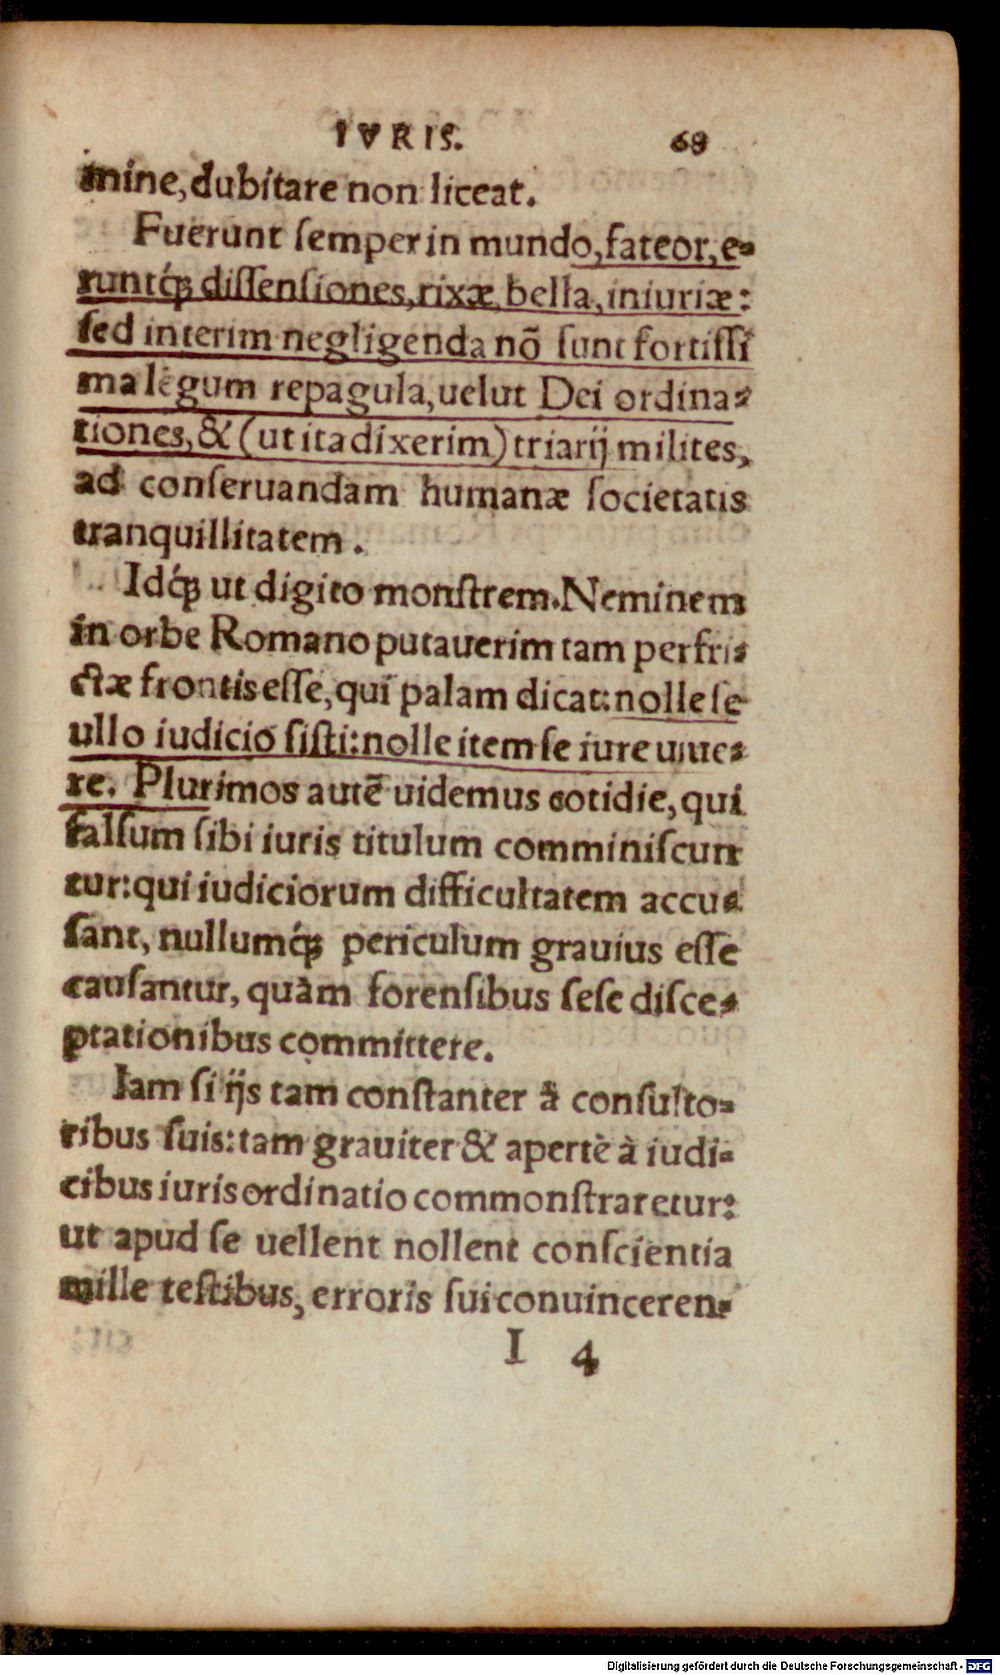 IVRIS. 68
mine, dubitare non liceat.
Fuerunt ſemper in mundo, fateor, e-
runtq́ꝫ diſſenſiones, rixæ, bella, iniuriæ:
ſed interim negligenda nō ſunt fortiſſi
ma legum repagula, uelut Dei ordina-
tiones, & (ut ita dixerim) triarij milites,
ad conſeruandam humanæ ſocietatis
tranquillitatem.
Idq́ꝫ ut digito monſtrem. Neminem
in orbe Romano putauerim tam perfri-
ctæ frontis eſſe, qui palam dicat: nolle ſe
ullo iudicio ſiſti: nolle item ſe iure uiue-
re. Plurimos autē uidemus cotidie, qui
falſum ſibi iuris titulum comminiſcun
tur: qui iudiciorum difficultatem accu-
ſant, nullumq́ꝫ periculum grauius eſſe
cauſantur, quàm forenſibus ſeſe diſce-
ptationibus committere.
Iam ſi ijs tam conſtanter à conſulto-
ribus ſuis: tam grauiter & apertè à iudi-
cibus iuris ordinatio commonſtraretur:
ut apud ſe uellent nollent conſcientia
mille teſtibus, erroris ſui conuinceren-
I 4
Digitalisierung gefördert durch die Deutsche Forschungsgemeinschaft - DFG